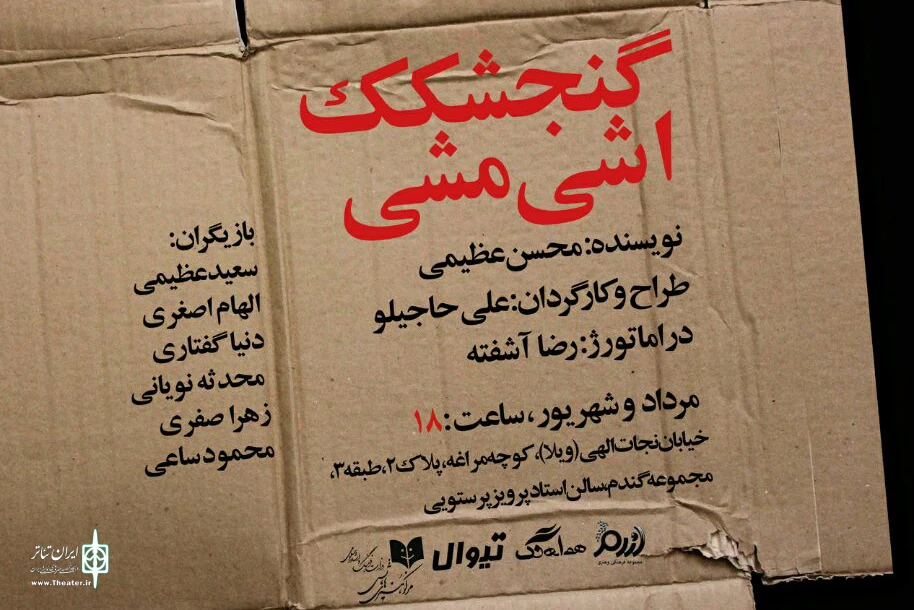 گنجشکک
اشی مشی
نویسنده: محسن عظیمی
طراح و کارگردان: علی حاجیلو
دراماتورژ: رضا آشفته
مرداد و شهریور، ساعت: ۱۸
خیابان نجات الهی (ویلا)، کوچه مراغه، پلاک ۲، طبقه ۳،
مجموعه گندم، سالن استاد پرویز پرستویی
بازیگران:
سعید عظیمی
الهام اصغری
دنیا گفتاری
محدثه نویانی
زهرا صفری
محمود ساعی
تیوال
ایران تئاتر
www.Theater.ir